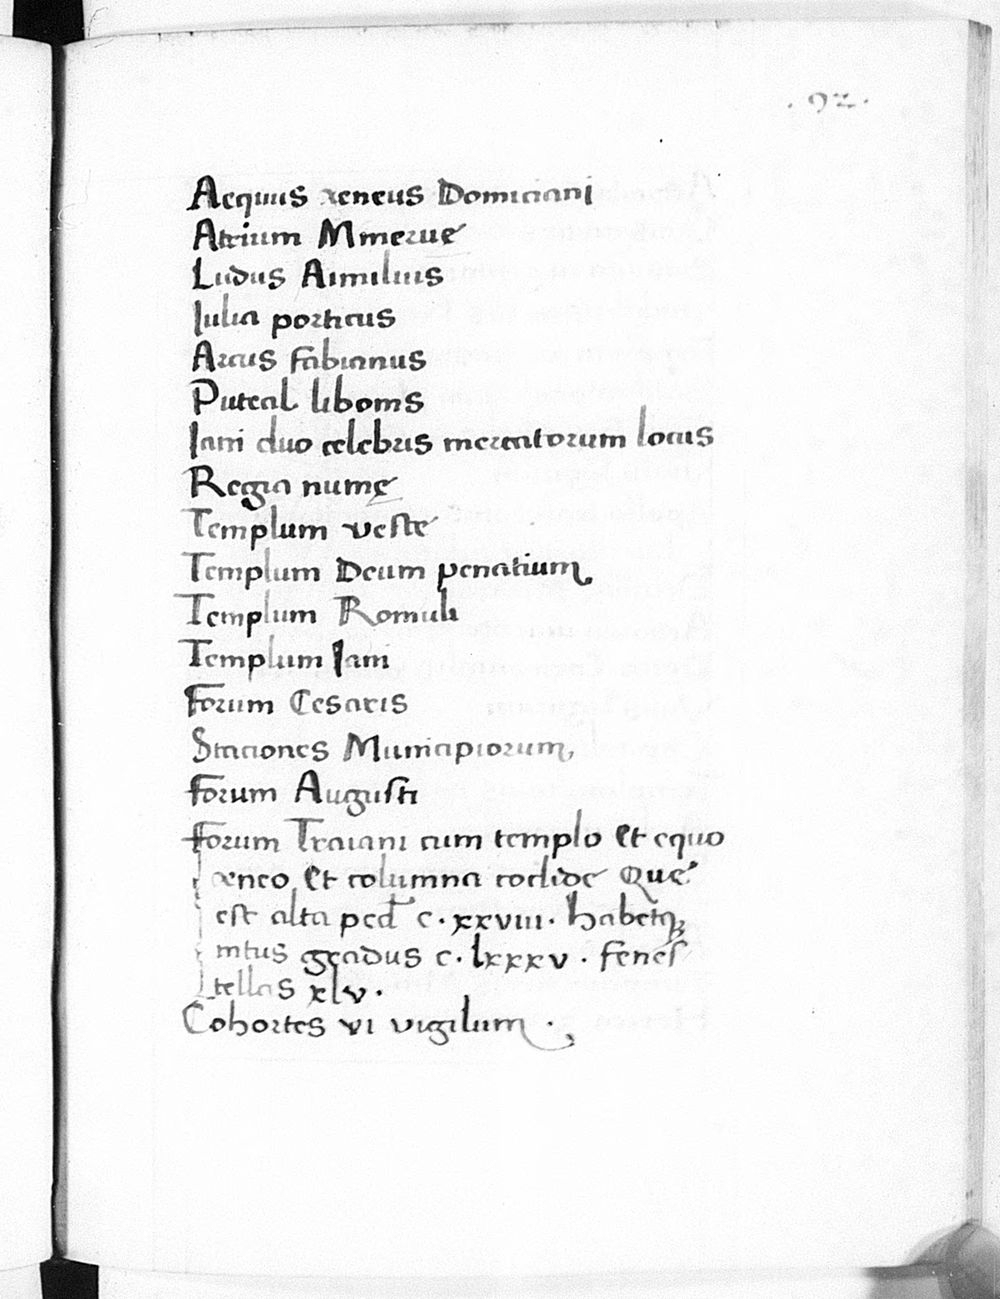 . 92 .
Aequus aeneus Domiciani
Atrium Mineruę
Ludus Aimilius
Iulia porticus
Arcus fabianus
Puteal libonis
Iani duo celebris mercatorum locus
Regia numę
Templum vestę
Templum Deum penatium
Templum Romuli
Templum Iani
Forum Cesaris
Staciones Municipiorum,
Forum Augusti
Forum Traiani cum templo Et equo
æneo Et columna coclide Quę
est alta ped c . xxviii . habetq;
intus gradus c . lxxxv . fenes
tellas xlv .
Cohortes vi vigilum .